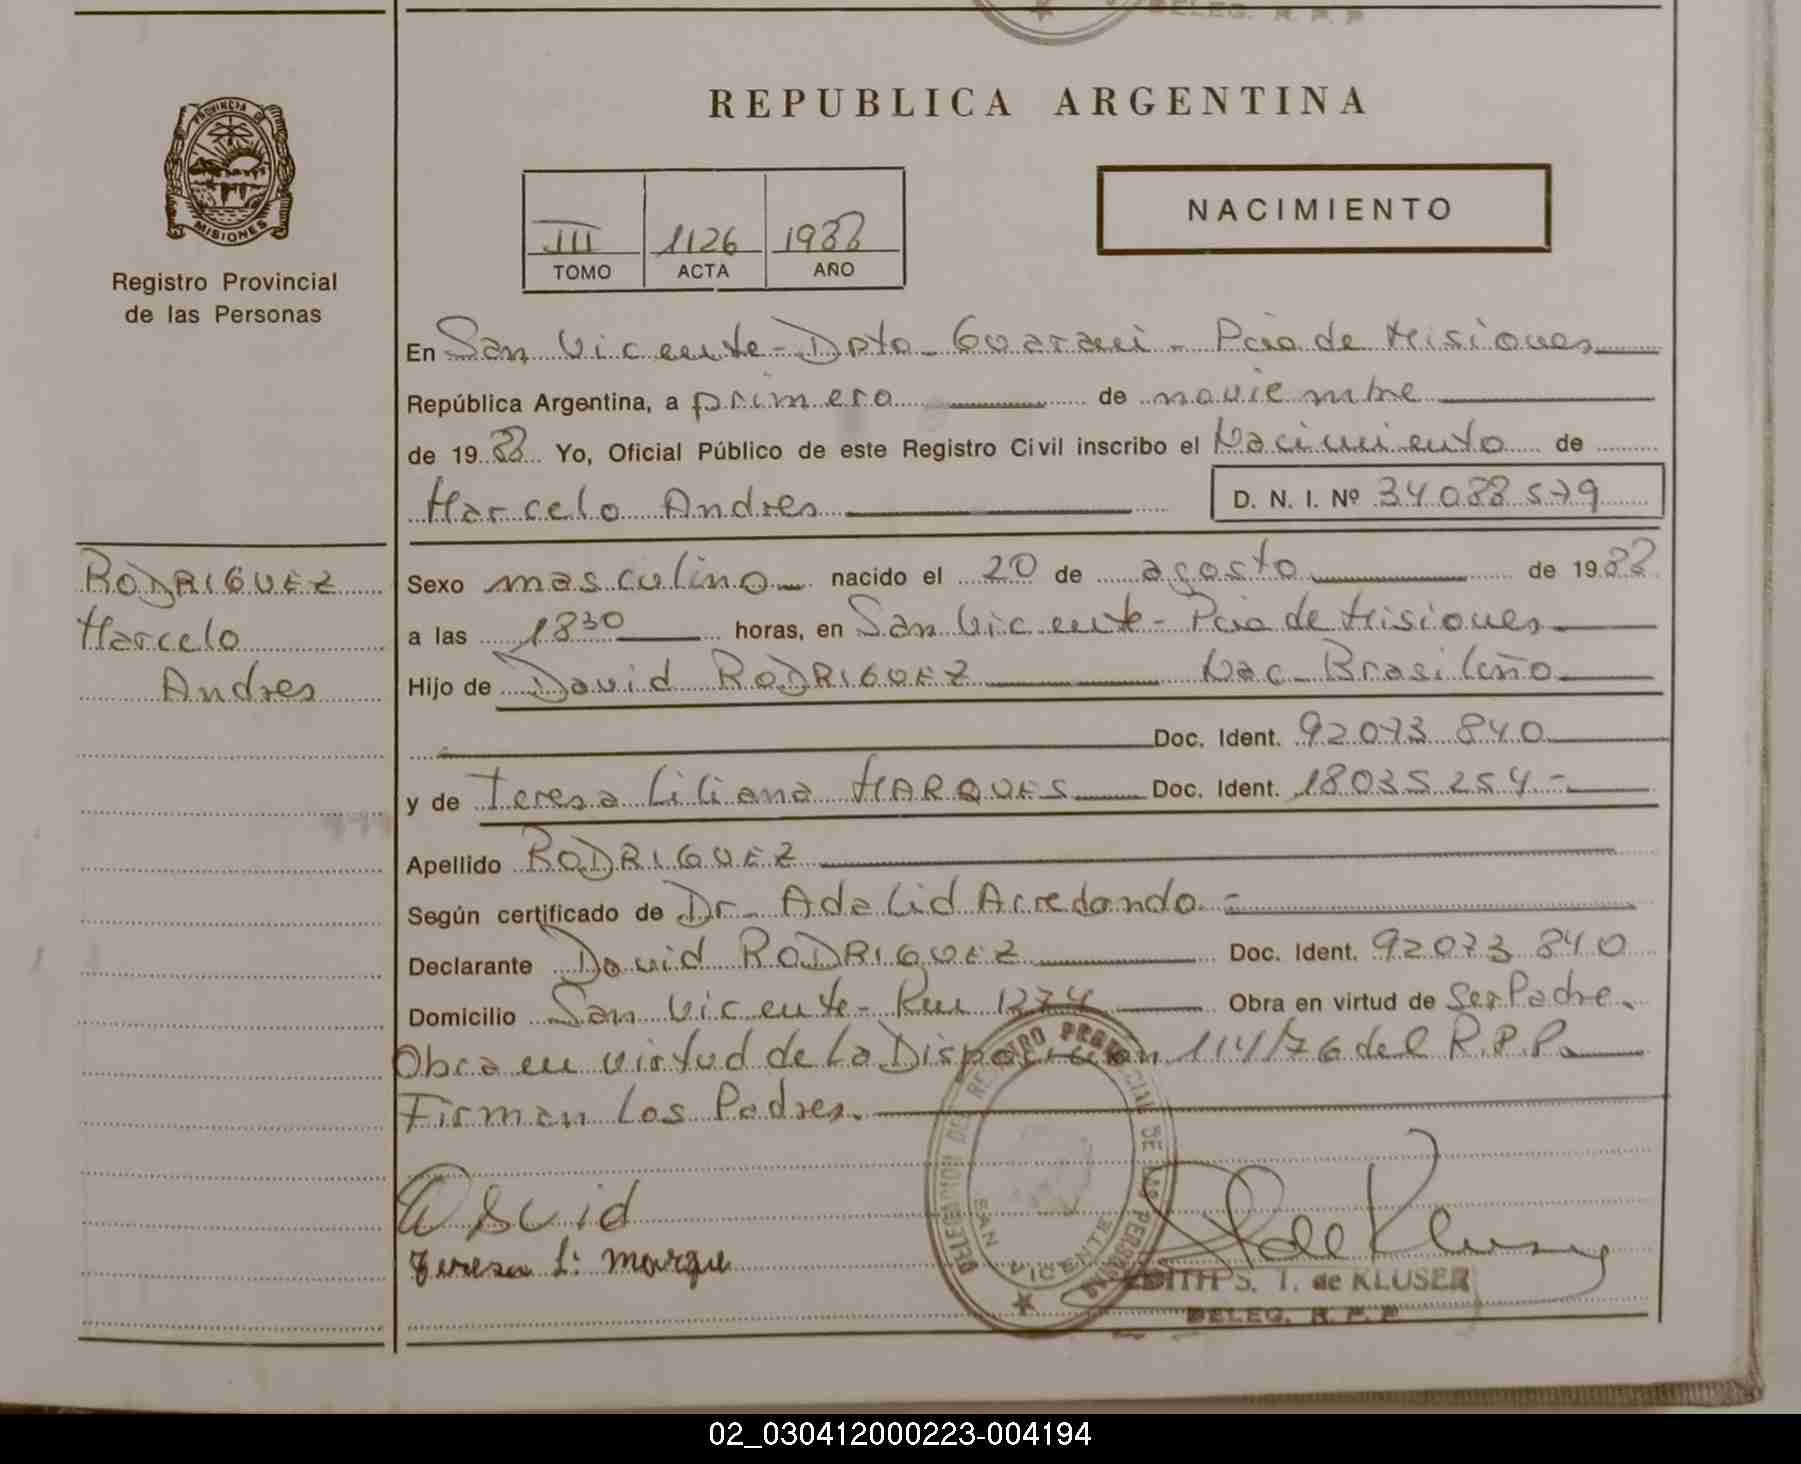 DELEG. R. P. P
PROVINCIA DE
MISIONES
Registro Provincial
de las Personas
REPUBLICA ARGENTINA
III 1126 1988
TOMO ACTA AÑO
NACIMIENTO
En San Vicente - Dpto - Guarani - Pcia de Misiones
República Argentina, a primero de noviembre
de 1988 Yo, Oficial Público de este Registro Civil inscribo el Nacimiento de
Marcelo Andres D. N. I. Nº 34 088 579
RODRIGUEZ
Marcelo
Andres
Sexo masculino nacido el 20 de agosto de 1988
a las 18 30 horas, en San Vicente - Pcia de Misiones
Hijo de David RODRIGUEZ Nac - Brasileño
Doc. Ident. 92 073 840
y de Teresa Liliana MARQUES Doc. Ident. 18035 254 -
Apellido RODRIGUEZ
Según certificado de Dr - Adalid Arredondo -
Declarante David RODRIGUEZ Doc. Ident. 92 073 840
Domicilio San Vicente - Km 1274 Obra en virtud de Ser Padre.
Obra en virtud de la Disposicion 114/76 del R.P.P.
Firman los Padres.
David
Teresa L: Marque
DELEGACION DEL REGISTRO PROVINCIAL DE LAS PERSONAS
SAN VICENTE
S. T. de KLUSER
DELEG. R. P. P
02_030412000223-004194